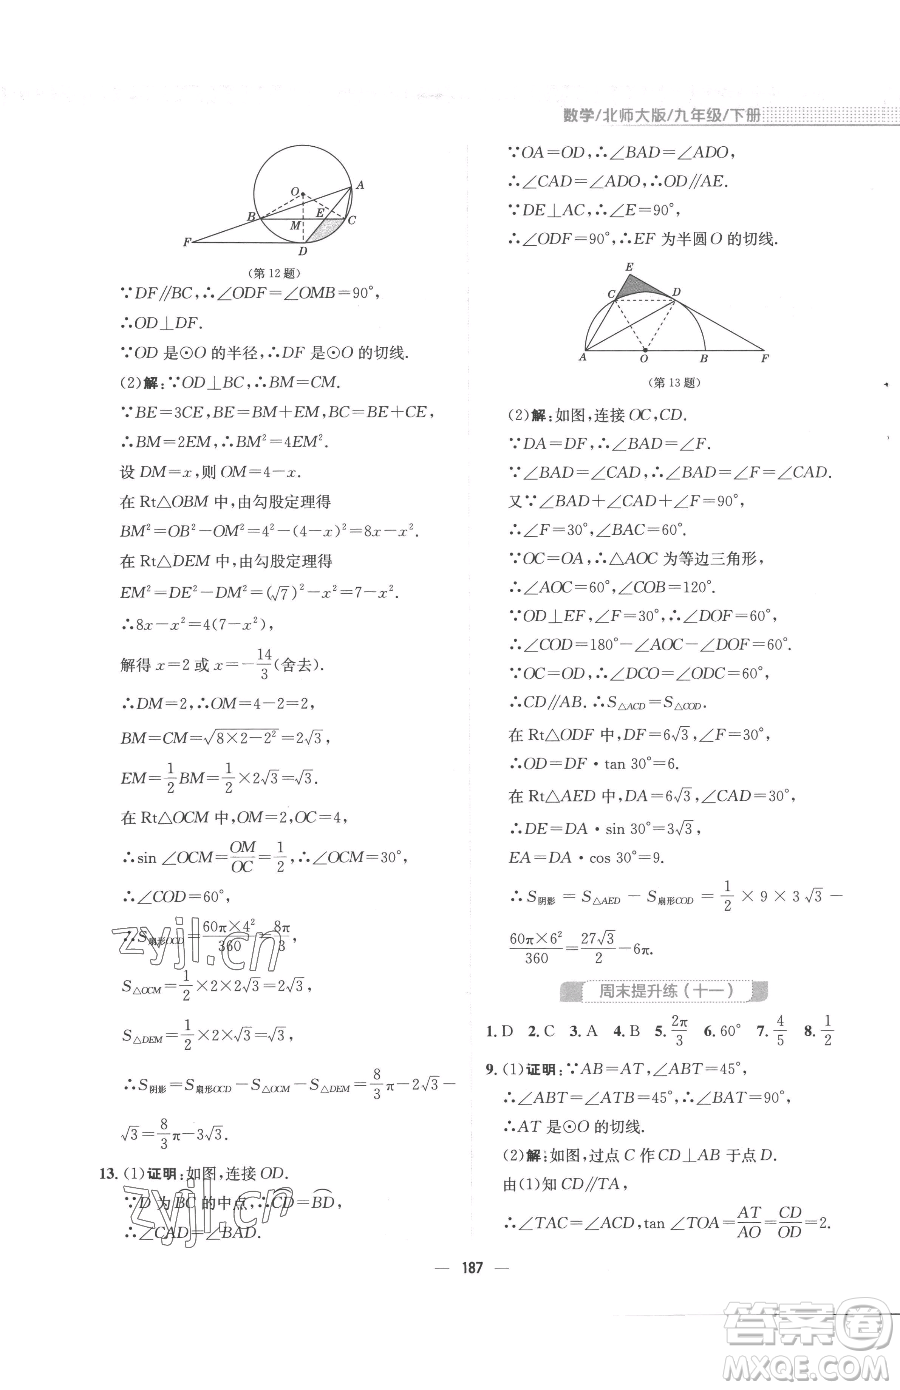 数学/北师大版/九年级/下册
O
A
B
M
E
C
F
D
(第12题)
∵DF∥BC,∴∠ODF=∠OMB=90°,
∴OD⊥DF.
∵OD 是⊙O的半径,∴DF 是⊙O的切线.
(2)解:∵OD⊥BC,∴BM=CM.
∵BE=3CE,BM=BM+EM,BC=BE+CE,
∴BM=2EM,∴BM²=4EM².
设 DM=x,则 OM=4-x.
在 Rt△OBM 中,由勾股定理得
BM²=OB²-OM²=4²-(4-x)²=8x-x².
在 Rt△DEM 中,由勾股定理得
EM²=DE²-DM²=(√7)²-x²=7-x².
∴8x-x²=4(7-x²),
解得 x=2 或 x=-14/3(舍去).
∴DM=2,∴OM=4-2=2,
BM=CM=√(8×2-2²)=2√3,
EM=1/2BM=1/2×2√3=√3.
在 Rt△OCM 中,OM=2,OC=4,
∴sin ∠OCM=OM/OC=1/2,∴∠OCM=30°,
∴∠COD=60°,
∴S扇形OCD=60π×4²/360=8π/3,
S△OCM=1/2×2×2√3=2√3,
S△DEM=1/2×2×√3=√3.
∴S阴影=S扇形OCD-S△OCM-S△DEM=8/3π-2√3-
√3=8/3π-3√3.
13.(1)证明:如图,连接 OD.
∵D 为BC的中点,∴CD=BD,
∴∠CAD=∠BAD.
∵OA=OD,∴∠BAD=∠ADO,
∴∠CAD=∠ADO,∴OD∥AE.
∵DE⊥AC,∴∠E=90°,
∴∠ODF=90°,∴EF 为半圆O的切线.
E
C
D
A
O
B
F
(第13题)
(2)解:如图,连接 OC,CD.
∵DA=DF,∴∠BAD=∠F.
∵∠BAD=∠CAD,∴∠F=∠BAD=∠CAD.
又∵∠BAD+∠CAD+∠F=90°,
∴∠F=30°,∠BAC=60°.
∵OC=OA,∴△AOC 为等边三角形,
∴∠AOC=60°,∠COB=120°.
∵OD⊥EF,∠F=30°,∴∠DOF=60°,
∴∠COD=180°-∠AOC-∠DOF=60°.
∵OC=OD,∴∠DCO=∠ODC=60°,
∴CD∥AB.∴S△ACD=S△COD.
在 Rt△ODF 中,DF=6√3,∠F=30°,
∴OD=DF·tan 30°=6.
在 Rt△AED 中,DA=6√3,∠CAD=30°,
∴DE=DA·sin 30°=3√3,
EA=DA·cos 30°=9.
∴S阴影=S△AED-S扇形COD=1/2×9×3√3-
60π×6²/360=27√3/2-6π.
周末提升练(十一)
1. D 2. C 3. A 4. B 5. 2π/3 6. 60° 7. 4/5 8. 1/2
9.(1)证明:∵AB=AT,∠ABT=45°,
∴∠ABT=∠ATB=45°,∴∠BAT=90°,
∴AT 是⊙O的切线.
(2)解:如图,过点 C 作 CD⊥AB 于点 D.
由(1)知 CD∥TA,
∴∠TAC=∠ACD,tan ∠TOA=AT/AO=CD/OD=2.
187
zyjl.cn
zyjl.cn
答案圈
MXQE.COM